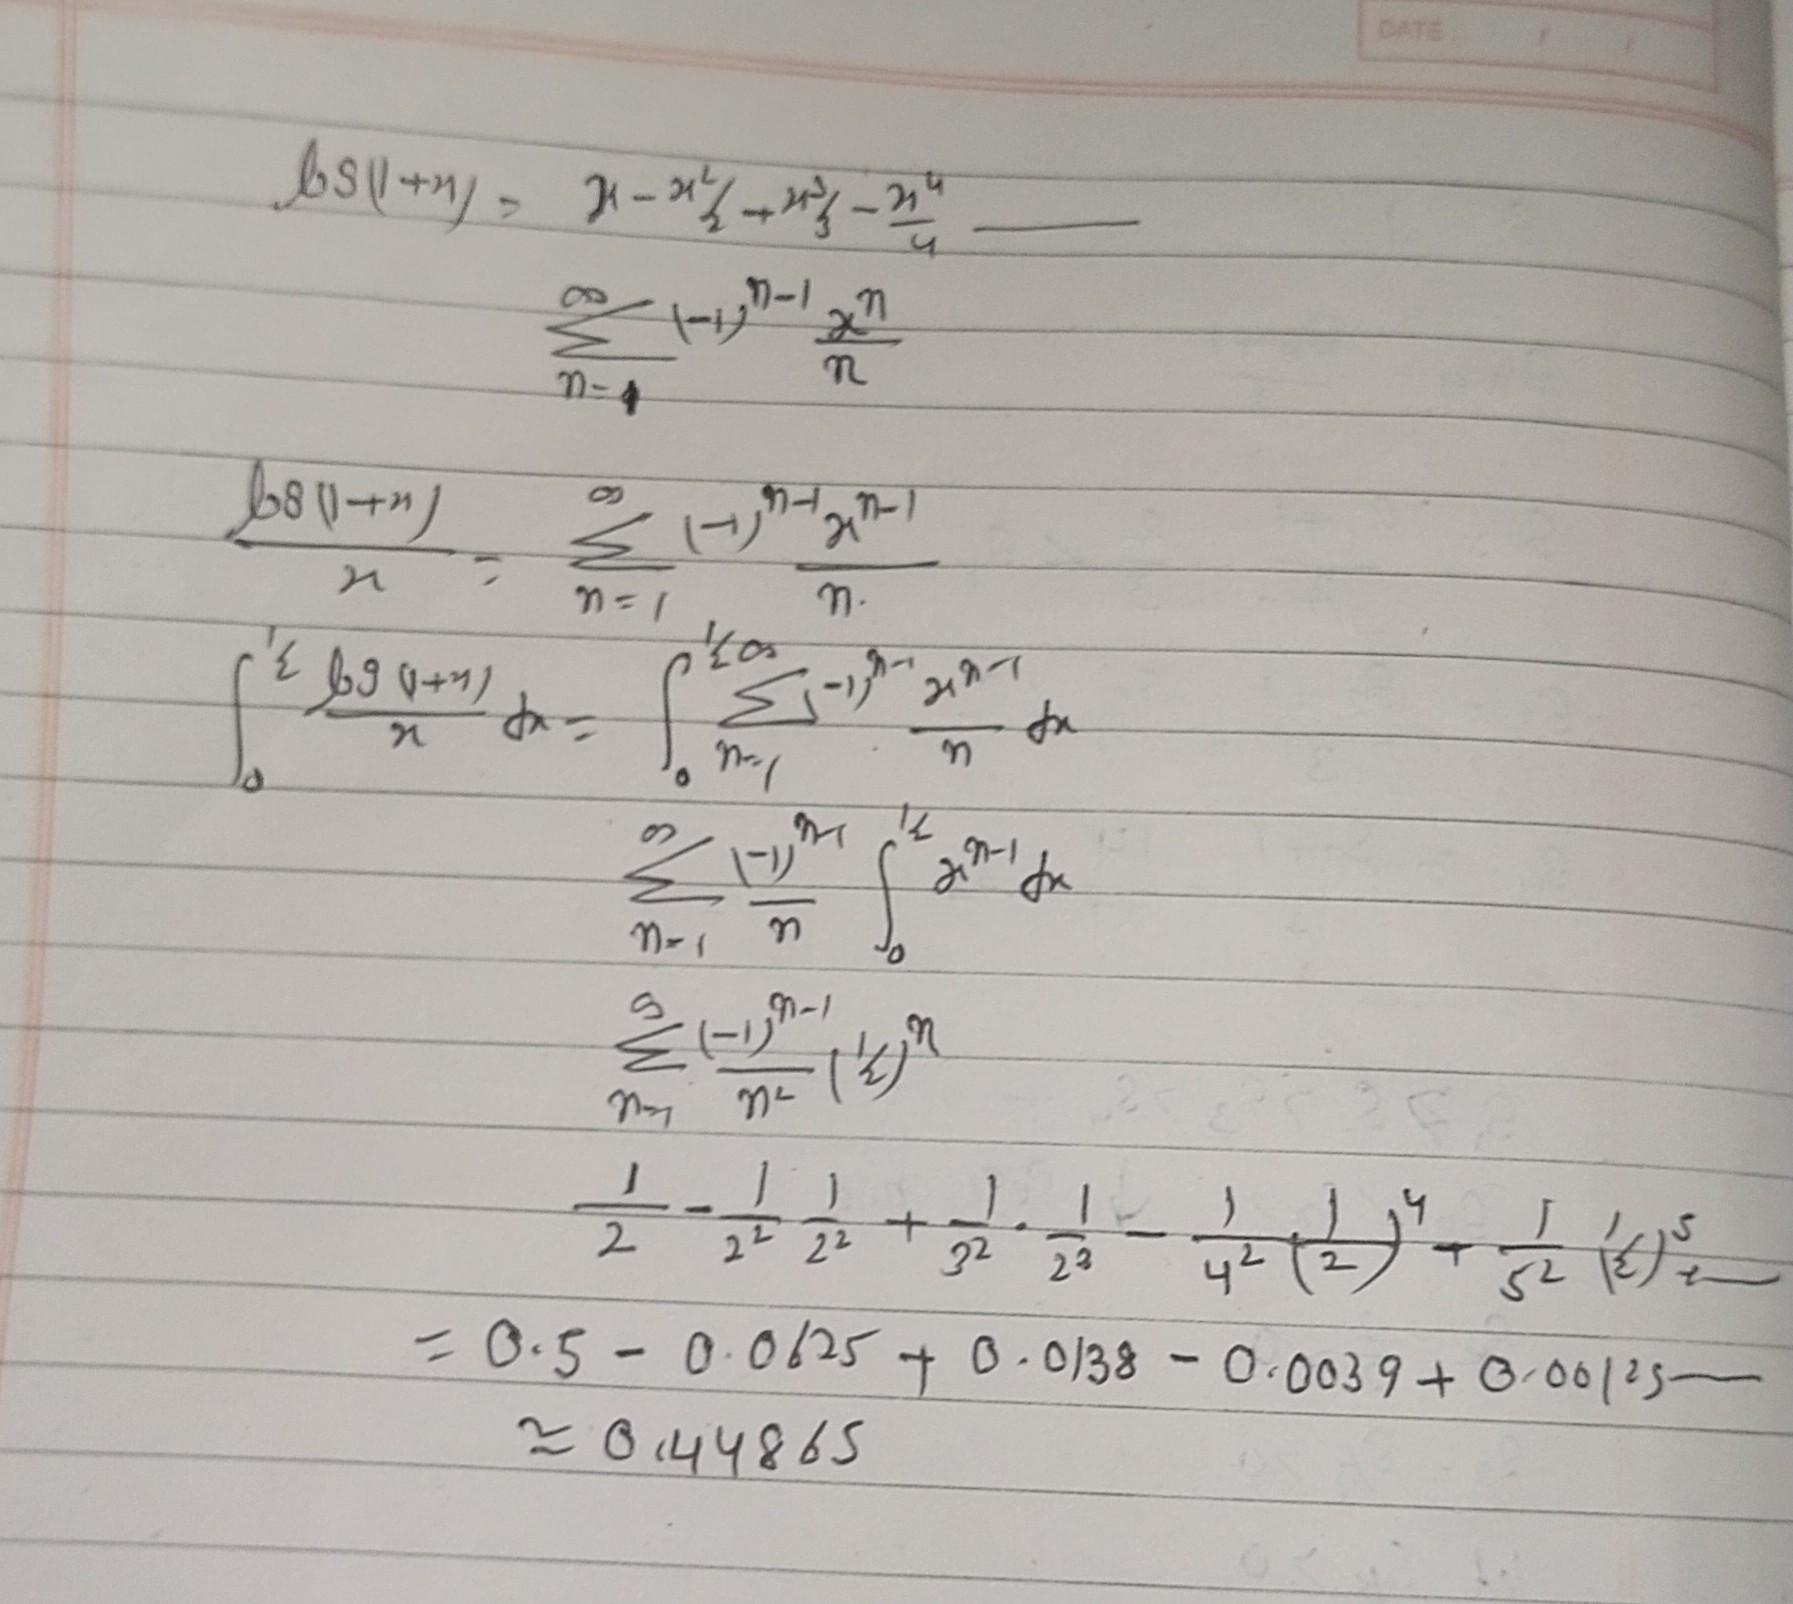 DATE / /
log(1+x) = x - x²/2 + x³/3 - x⁴/4 ——
∑_{n=1}^{∞} (-1)^{n-1} x^n/n
log(1+x)/x = ∑_{n=1}^{∞} (-1)^{n-1} x^{n-1}/n.
∫_0^{1/2} log(1+x)/x dx = ∫_0^{1/2} ∑_{n=1}^{∞} (-1)^{n-1} x^{n-1}/n dx
∑_{n=1}^{∞} (-1)^{n-1}/n ∫_0^{1/2} x^{n-1} dx
∑_{n=1}^{∞} (-1)^{n-1}/n² (1/2)^n
1/2 - 1/2² 1/2² + 1/3² · 1/2³ - 1/4² (1/2)⁴ + 1/5² (1/2)⁵ + ——
= 0.5 - 0.0625 + 0.0138 - 0.0039 + 0.00125 ——
≃ 0.44865